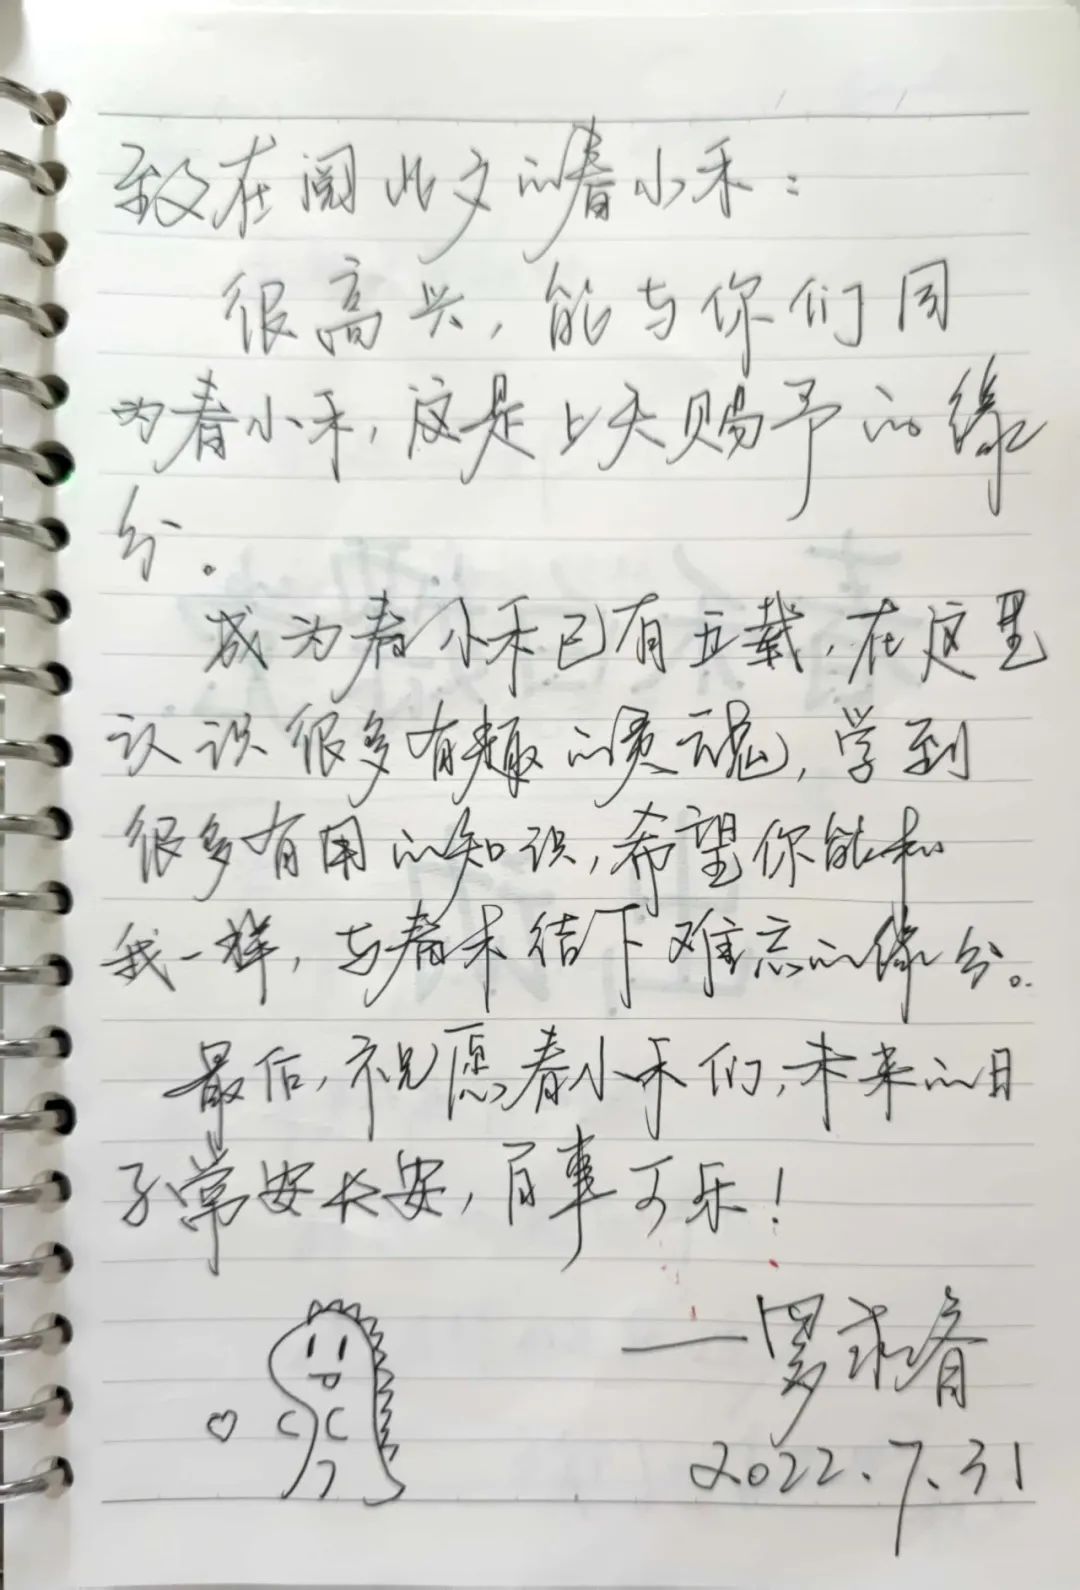 致在阅此文的春小禾：
很高兴，能与你们同
为春小禾，这是上天赐予的缘
分。
成为春小禾已有五载，在这里
认识很多有趣的灵魂，学到
很多有用的知识，希望你能和
我一样，与春禾结下难忘的缘分。
最后，祝愿春小禾们，未来的日
子常安长安，百事可乐！
——罗咏春
2022.7.31